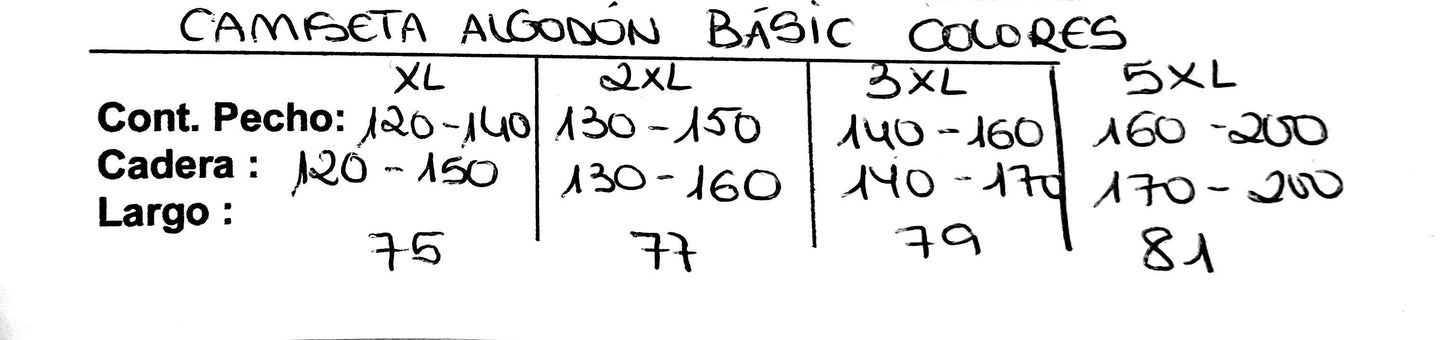 CAMISETA ALGODÓN BÁSIC COLORES
XL 2XL 3XL 5XL
Cont. Pecho: 120-140 130-150 140-160 160-200
Cadera : 120-150 130-160 140-170 170-200
Largo :
75 77 79 81